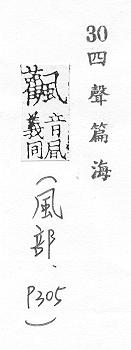 30四聲篇海
音凬
義同
(風部、P305)